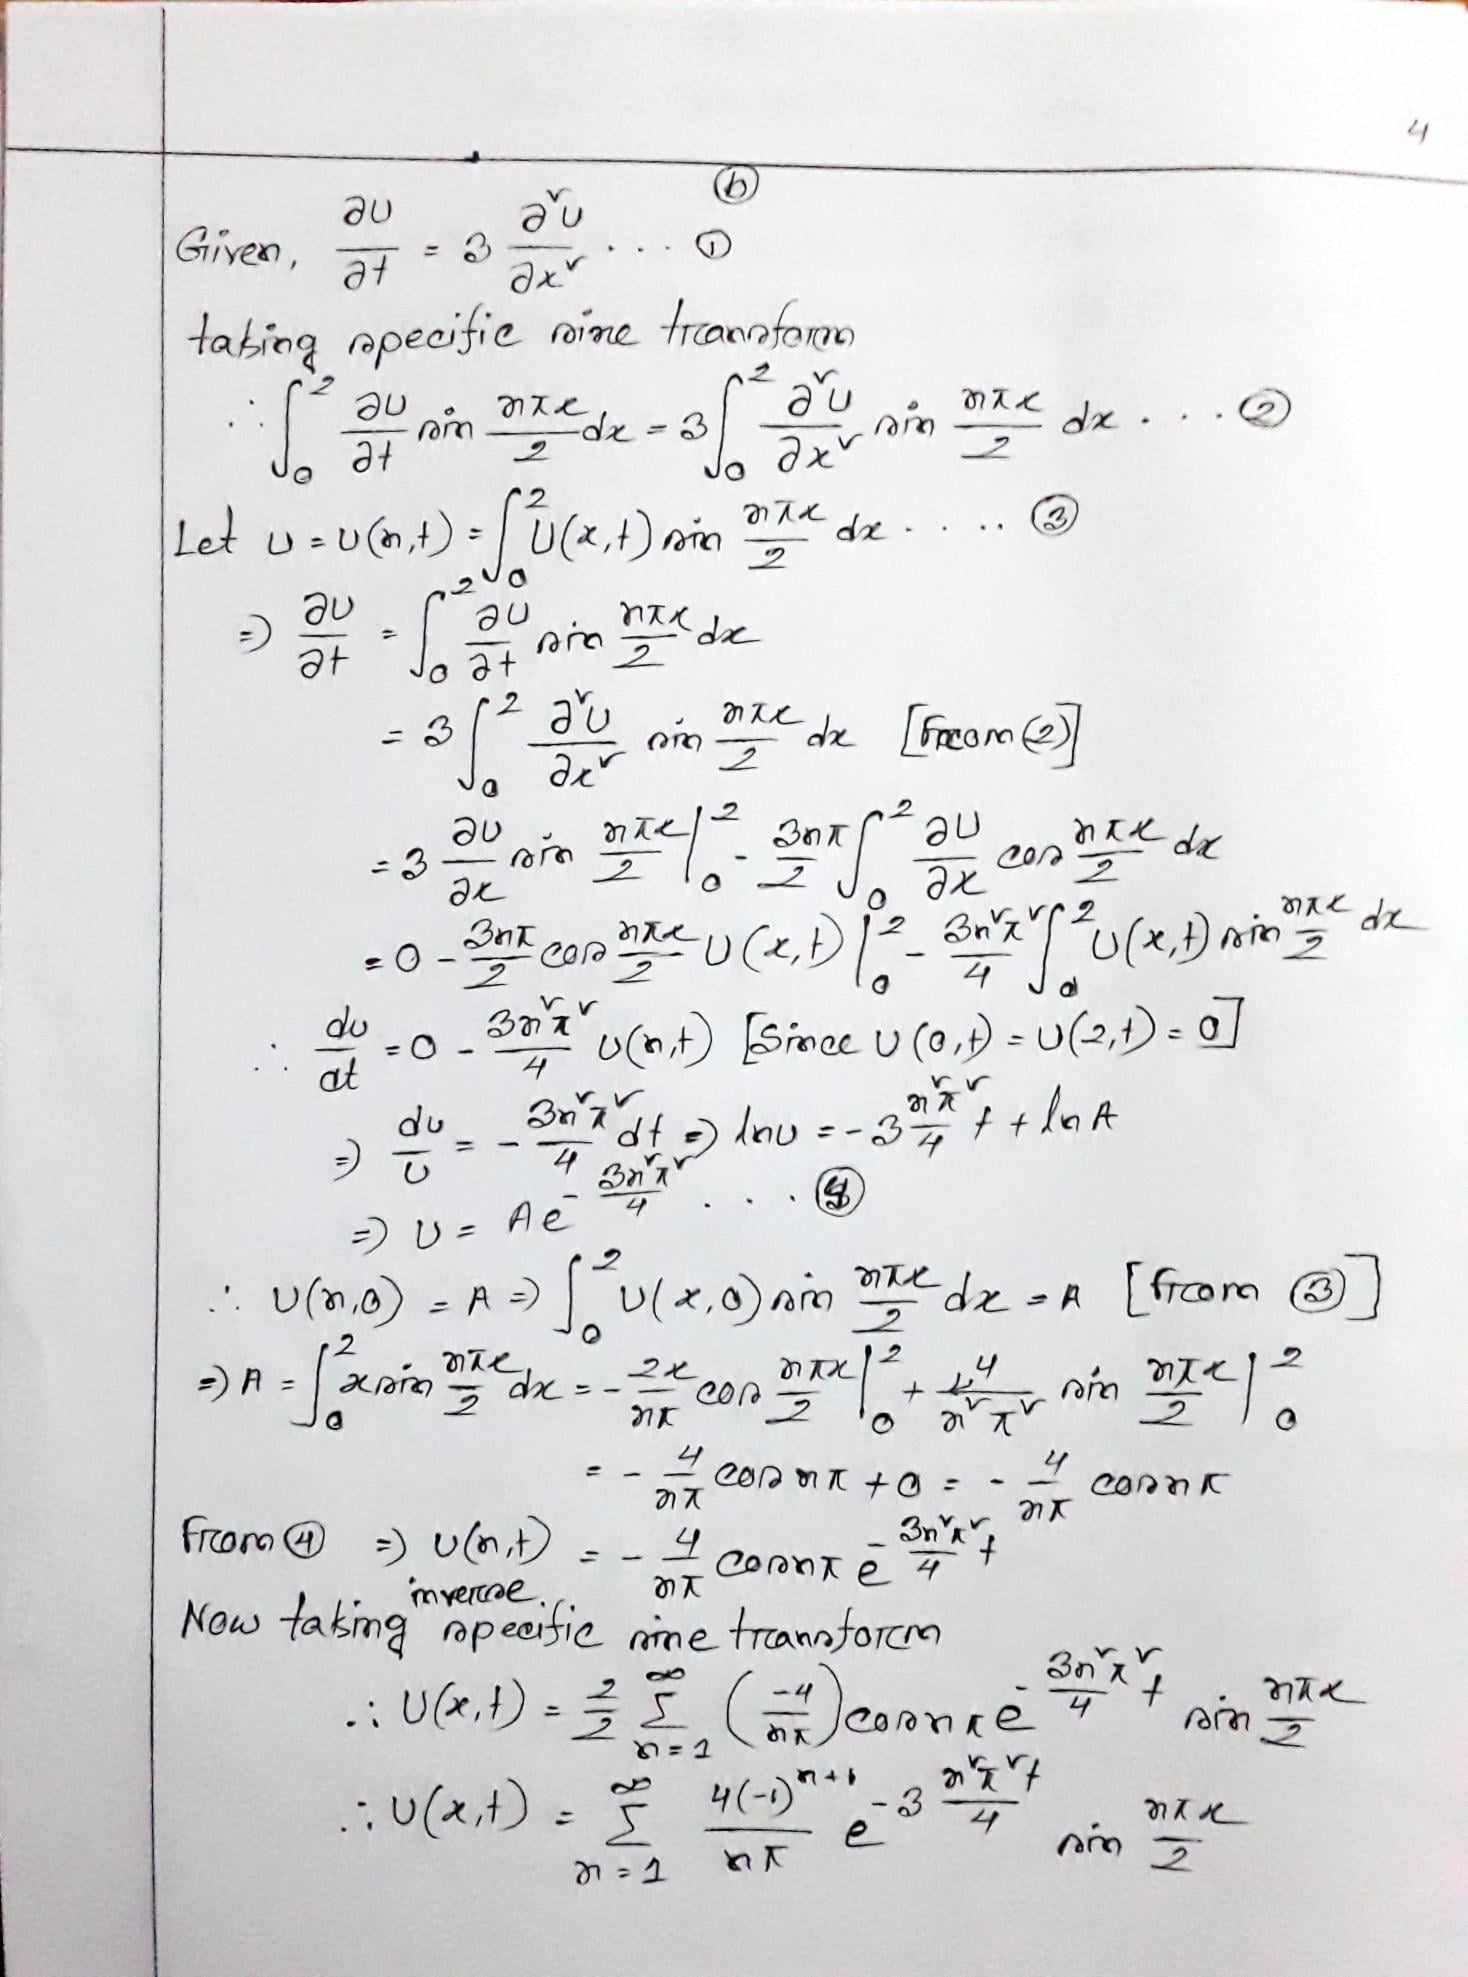 4
(b)
Given, ∂U/∂t = 3 ∂²U/∂x² ... ①
taking specific sine transform
∴ ∫₀² ∂U/∂t sin nπx/2 dx = 3∫₀² ∂²U/∂x² sin nπx/2 dx ... ②
Let u = u(n,t) = ∫₀² U(x,t) sin nπx/2 dx ..... ③
⇒ ∂u/∂t = ∫₀² ∂U/∂t sin nπx/2 dx
= 3∫₀² ∂²U/∂x² sin nπx/2 dx [From ②]
= 3 ∂U/∂x sin nπx/2 |₀² - 3nπ/2 ∫₀² ∂U/∂x cos nπx/2 dx
= 0 - 3nπ/2 cos nπx/2 U(x,t) |₀² - 3n²π²/4 ∫₀² U(x,t) sin nπx/2 dx
∴ du/dt = 0 - 3n²π²/4 u(n,t) [Since U(0,t) = U(2,t) = 0]
⇒ du/u = - 3n²π²/4 dt ⇒ lnu = -3 n²π²/4 t + ln A
⇒ u = Ae^(- 3n²π²/4) ... ④
∴ u(n,0) = A ⇒ ∫₀² U(x,0) sin nπx/2 dx = A [from ③]
⇒ A = ∫₀² x sin nπx/2 dx = - 2x/nπ cos nπx/2 |₀² + 4/n²π² sin nπx/2 |₀²
= - 4/nπ cos nπ + 0 = - 4/nπ cosnπ
From ④ ⇒ u(n,t) = - 4/nπ cosnπ e^(- 3n²π²/4 t)
Now taking inverse specific sine transform
∴ U(x,t) = 2/2 Σ_{n=1}^∞ (-4/nπ) cosnπ e^(- 3n²π²/4 t) sin nπx/2
∴ U(x,t) = Σ_{n=1}^∞ 4(-1)^(n+1)/nπ e^(-3 n²π²t/4) sin nπx/2